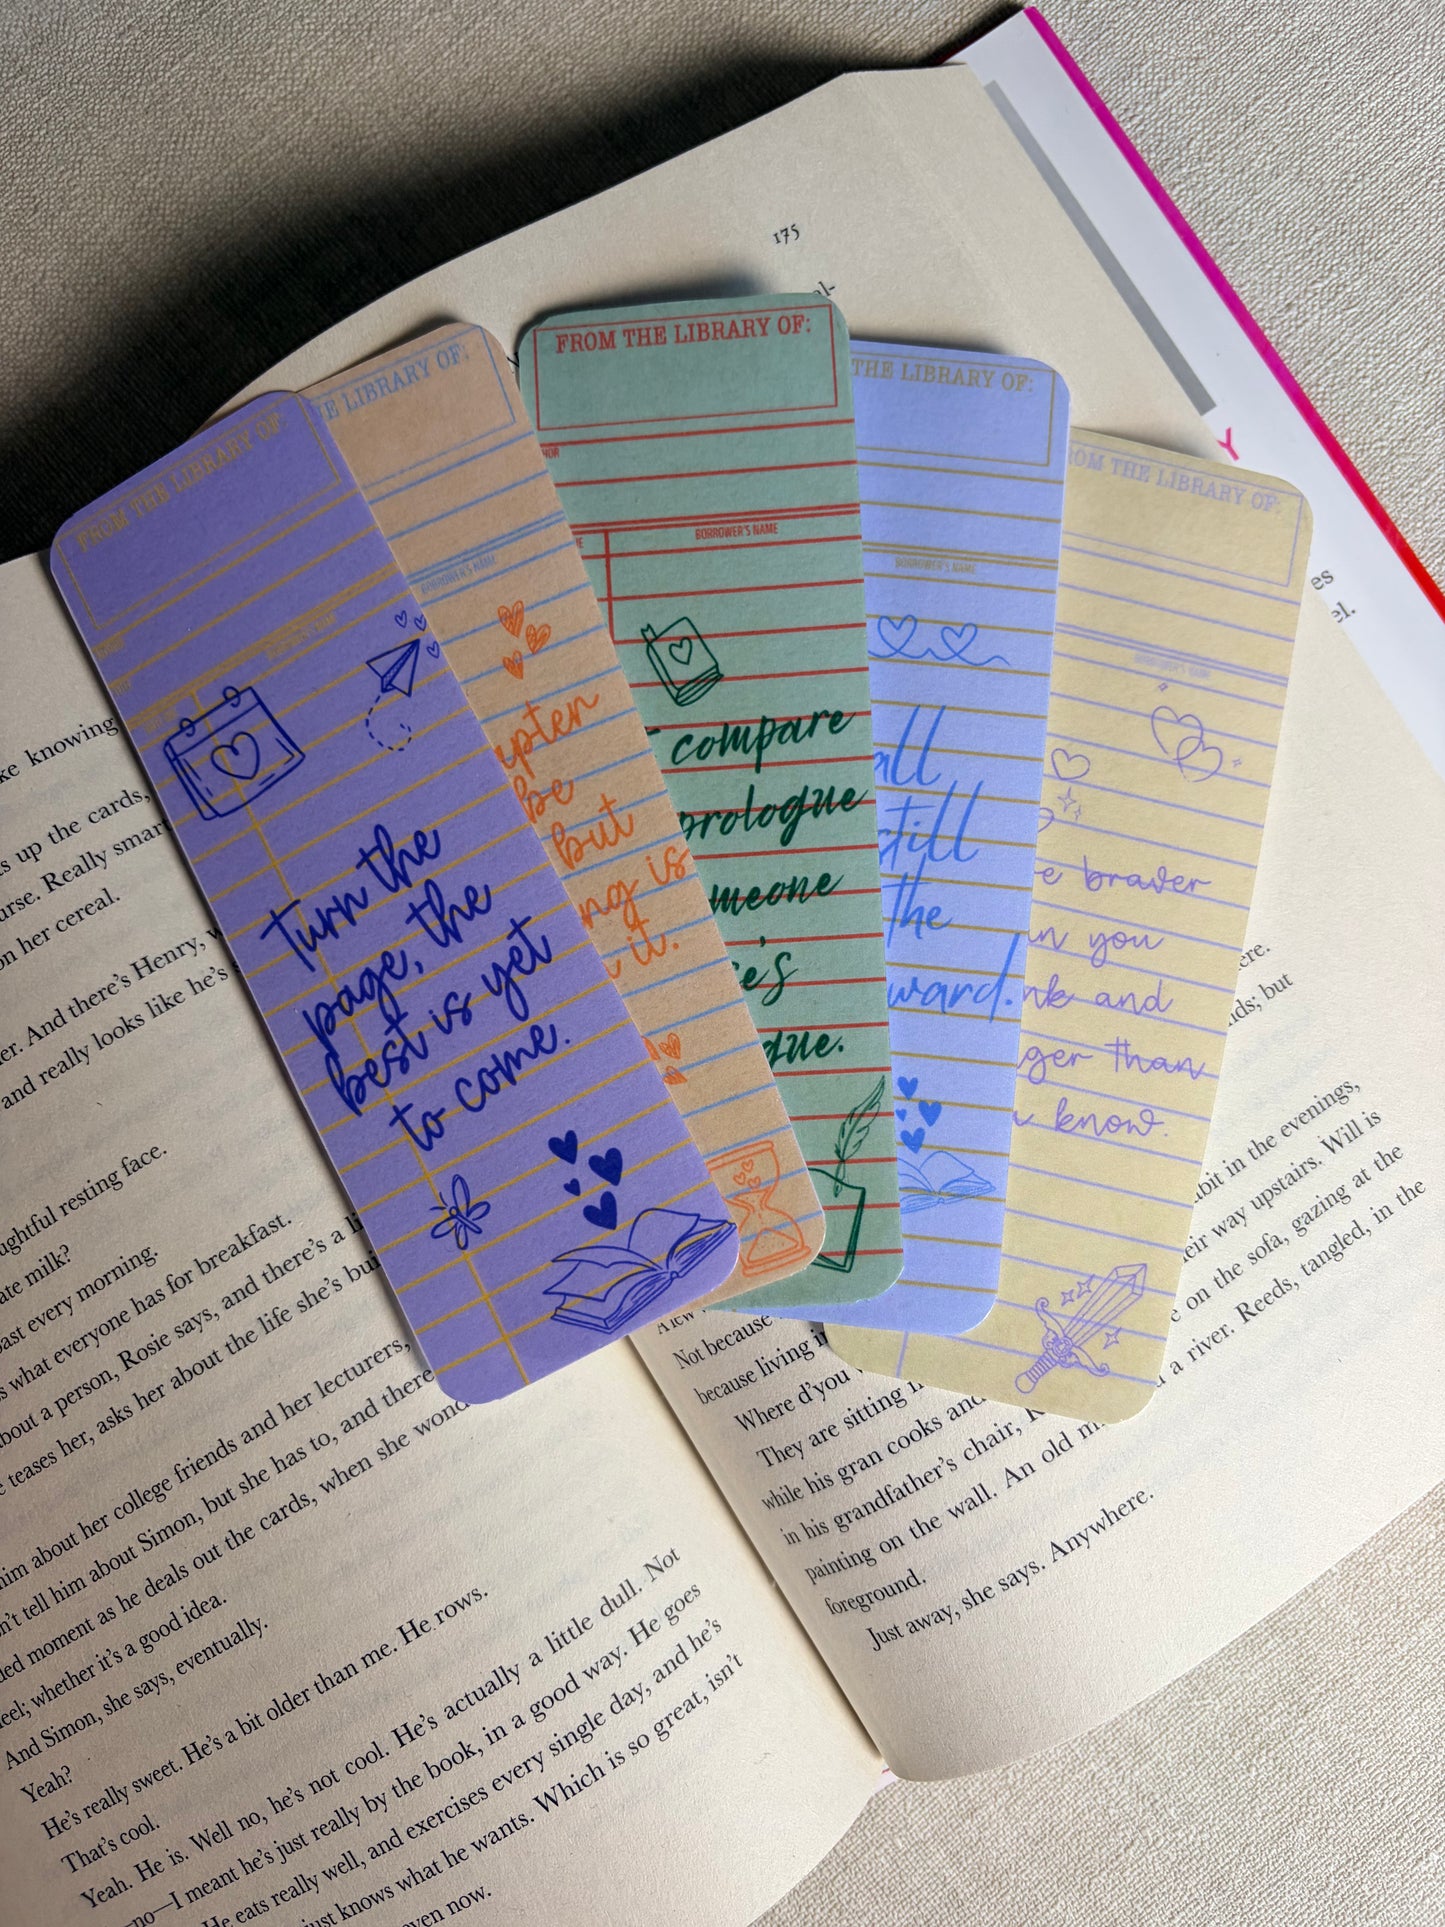 175
al-
FROM THE LIBRARY OF:
Turn the
page, the
best is yet
to come.
THE LIBRARY OF:
BORROWER'S NAME
be
but
ng is
it.
FROM THE LIBRARY OF:
BORROWER'S NAME
compare
prologue
meone
e's
gue.
THE LIBRARY OF:
BORROWER'S NAME
all
still
the
ward.
ROM THE LIBRARY OF:
BORROWER'S NAME
e braver
an you
nk and
ger than
u know.
Y
es
el.
ke knowing
ts up the cards,
urse. Really smart
on her cereal.
er. And there's Henry,
and really looks like he's
ughtful resting face.
ate milk?
ast every morning.
s what everyone has for breakfast.
bout a person, Rosie says, and there's a li
e teases her, asks her about the life she's bui
him about her college friends and her lecturers,
n't tell him about Simon, but she has to, and there
ded moment as he deals out the cards, when she wond
eel; whether it's a good idea.
And Simon, she says, eventually.
Yeah?
He's really sweet. He's a bit older than me. He rows.
That's cool.
Yeah. He is. Well no, he's not cool. He's actually a little dull. Not
—no—I meant he's just really by the book, in a good way. He goes
He eats really well, and exercises every single day, and he's
just knows what he wants. Which is so great, isn't
even now.
ere.
nds; but
bit in the evenings,
eir way upstairs. Will is
e on the sofa, gazing at the
a river. Reeds, tangled, in the
A few
Not because
because living in
Where d'you
They are sitting in
while his gran cooks and
in his grandfather's chair,
painting on the wall. An old m
foreground.
Just away, she says. Anywhere.